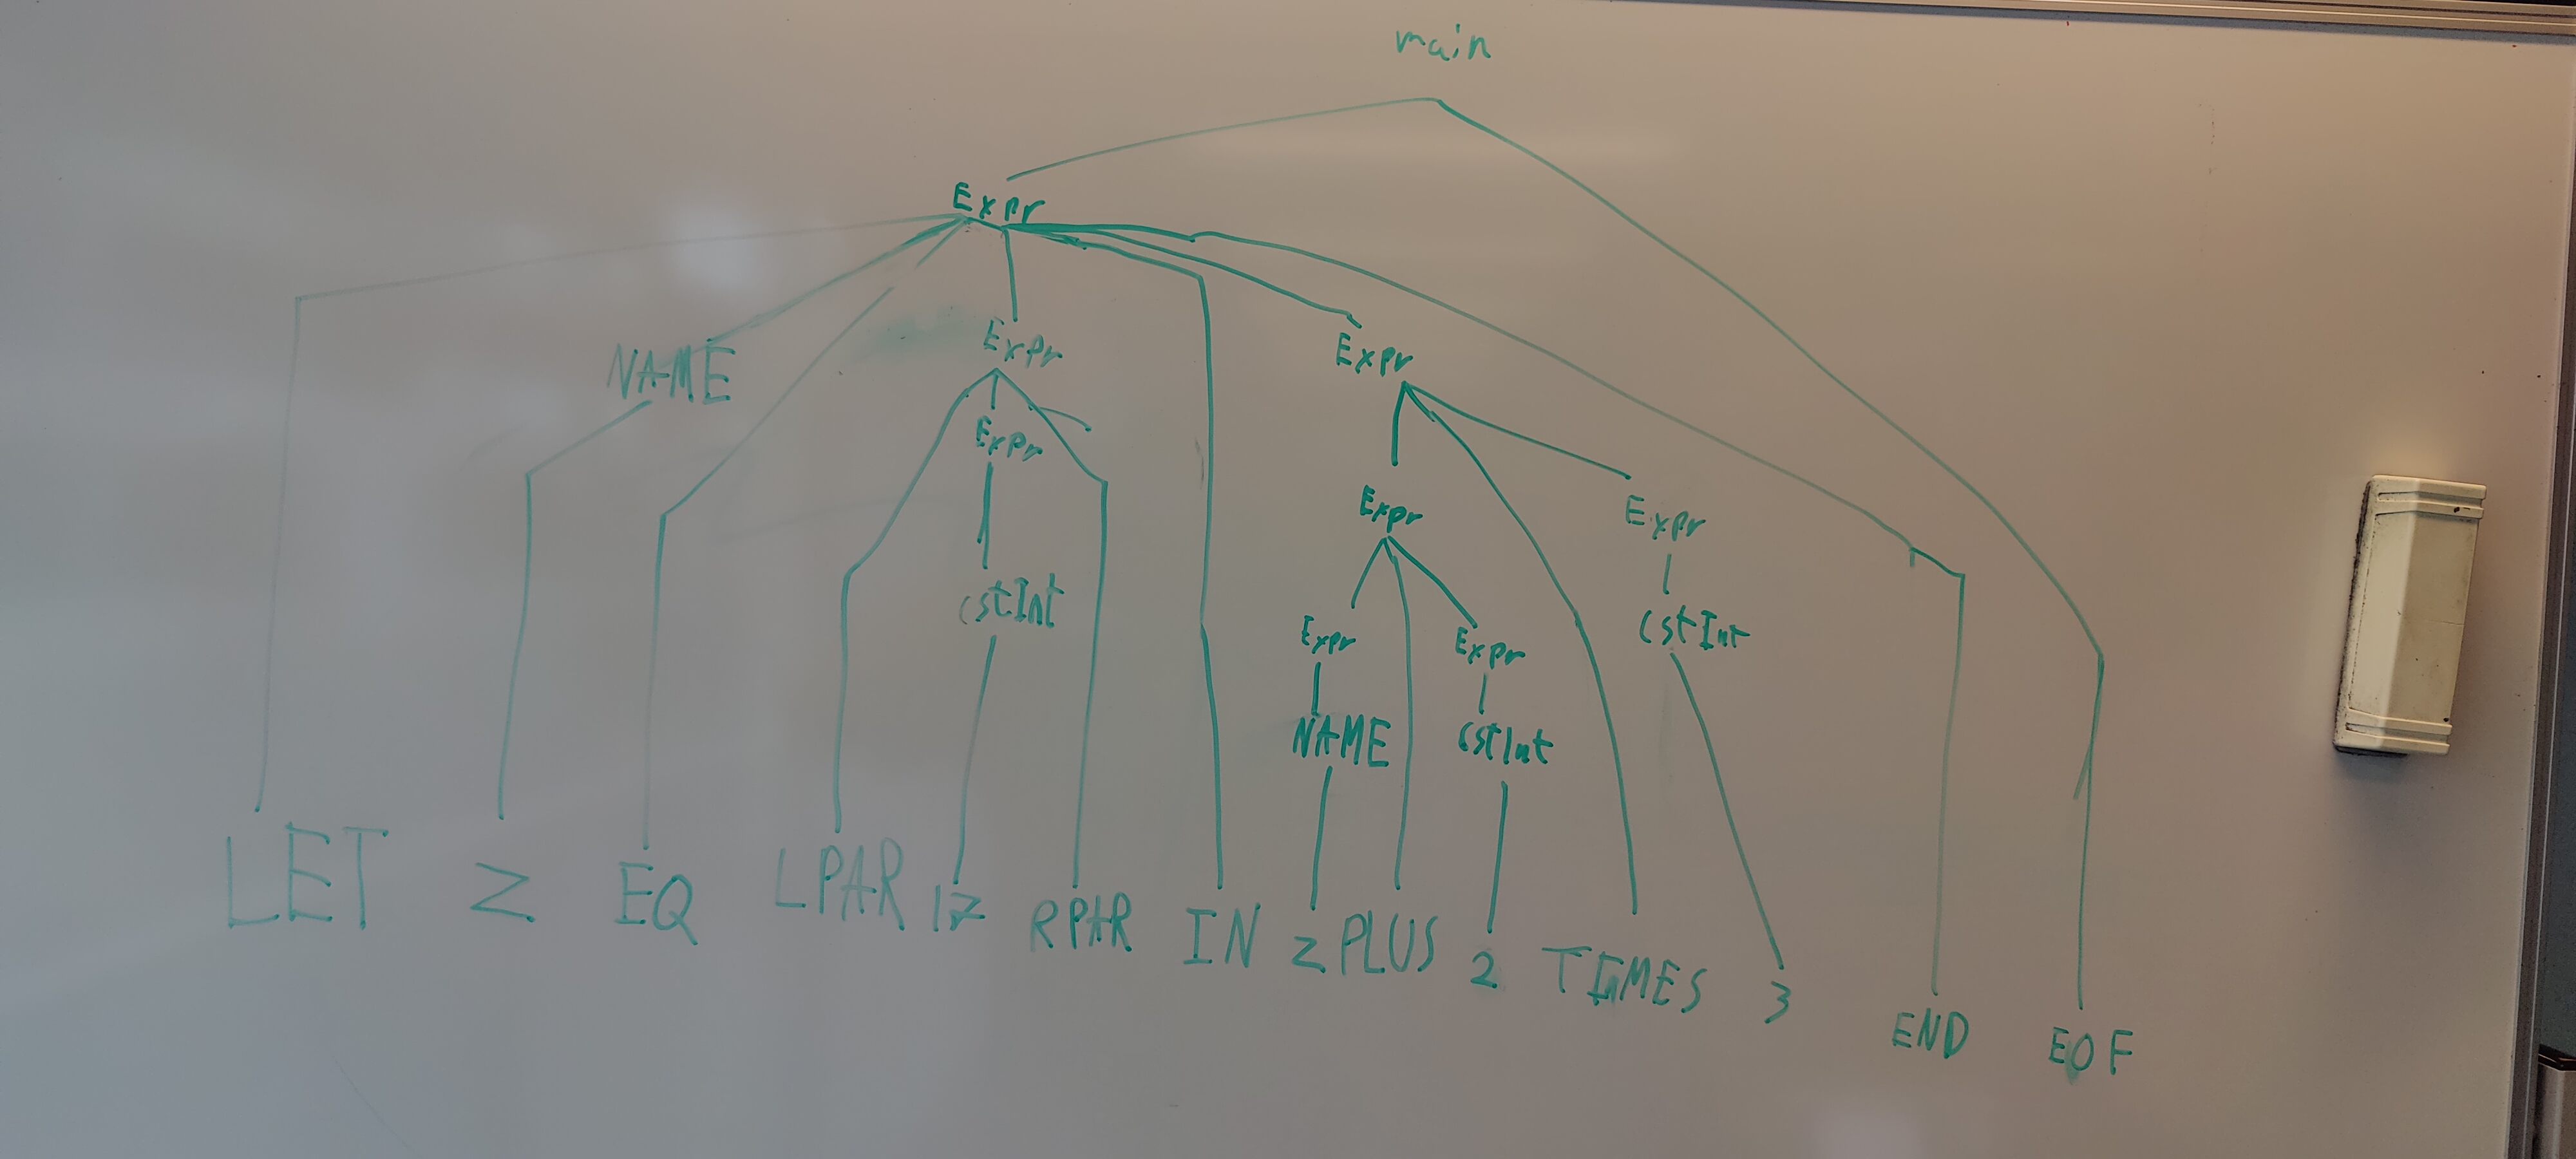 main
Expr
NAME Expr Expr
Expr
Expr Expr
cstInt Expr Expr cstInt
NAME cstInt
LET z EQ LPAR 17 RPAR IN z PLUS 2 TIMES 3 END EOF